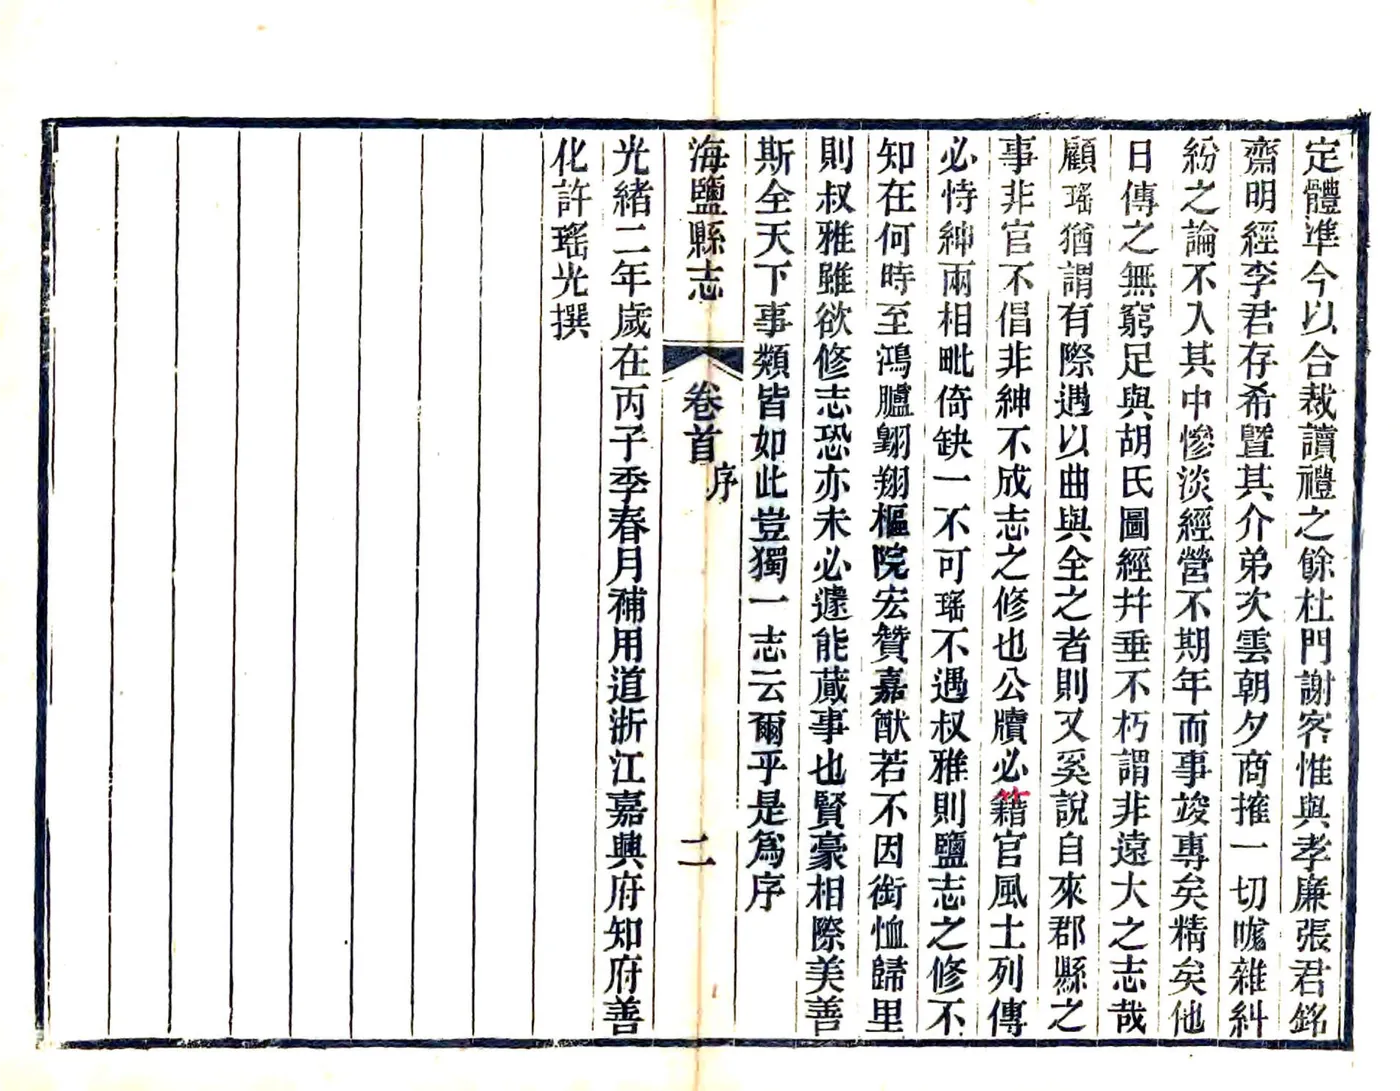 定體準今以合裁讀禮之餘杜門謝客惟與孝廉張君銘
齋明經李君存希暨其介弟次雲朝夕商搉一切嚨雜糾
紛之論不入其中慘淡經營不期年而事竣專矣精矣他
日傳之無窮足與胡氏圖經幷垂不朽謂非遠大之志哉
顧瑤猶謂有際遇以曲與全之者則又奚說自來郡縣之
事非官不倡非紳不成志之修也公牘必籍官風土列傳
必恃紳兩相毗倚缺一不可瑤不遇叔雅則鹽志之修不
知在何時至鴻臚翺翔樞院宏贊嘉猷若不因銜恤歸里
則叔雅雖欲修志恐亦未必遽能蕆事也賢豪相際美善
斯全天下事類皆如此豈獨一志云爾乎是爲序
海鹽縣志
卷首
序
二
光緒二年歲在丙子季春月補用道浙江嘉興府知府善
化許瑤光撰